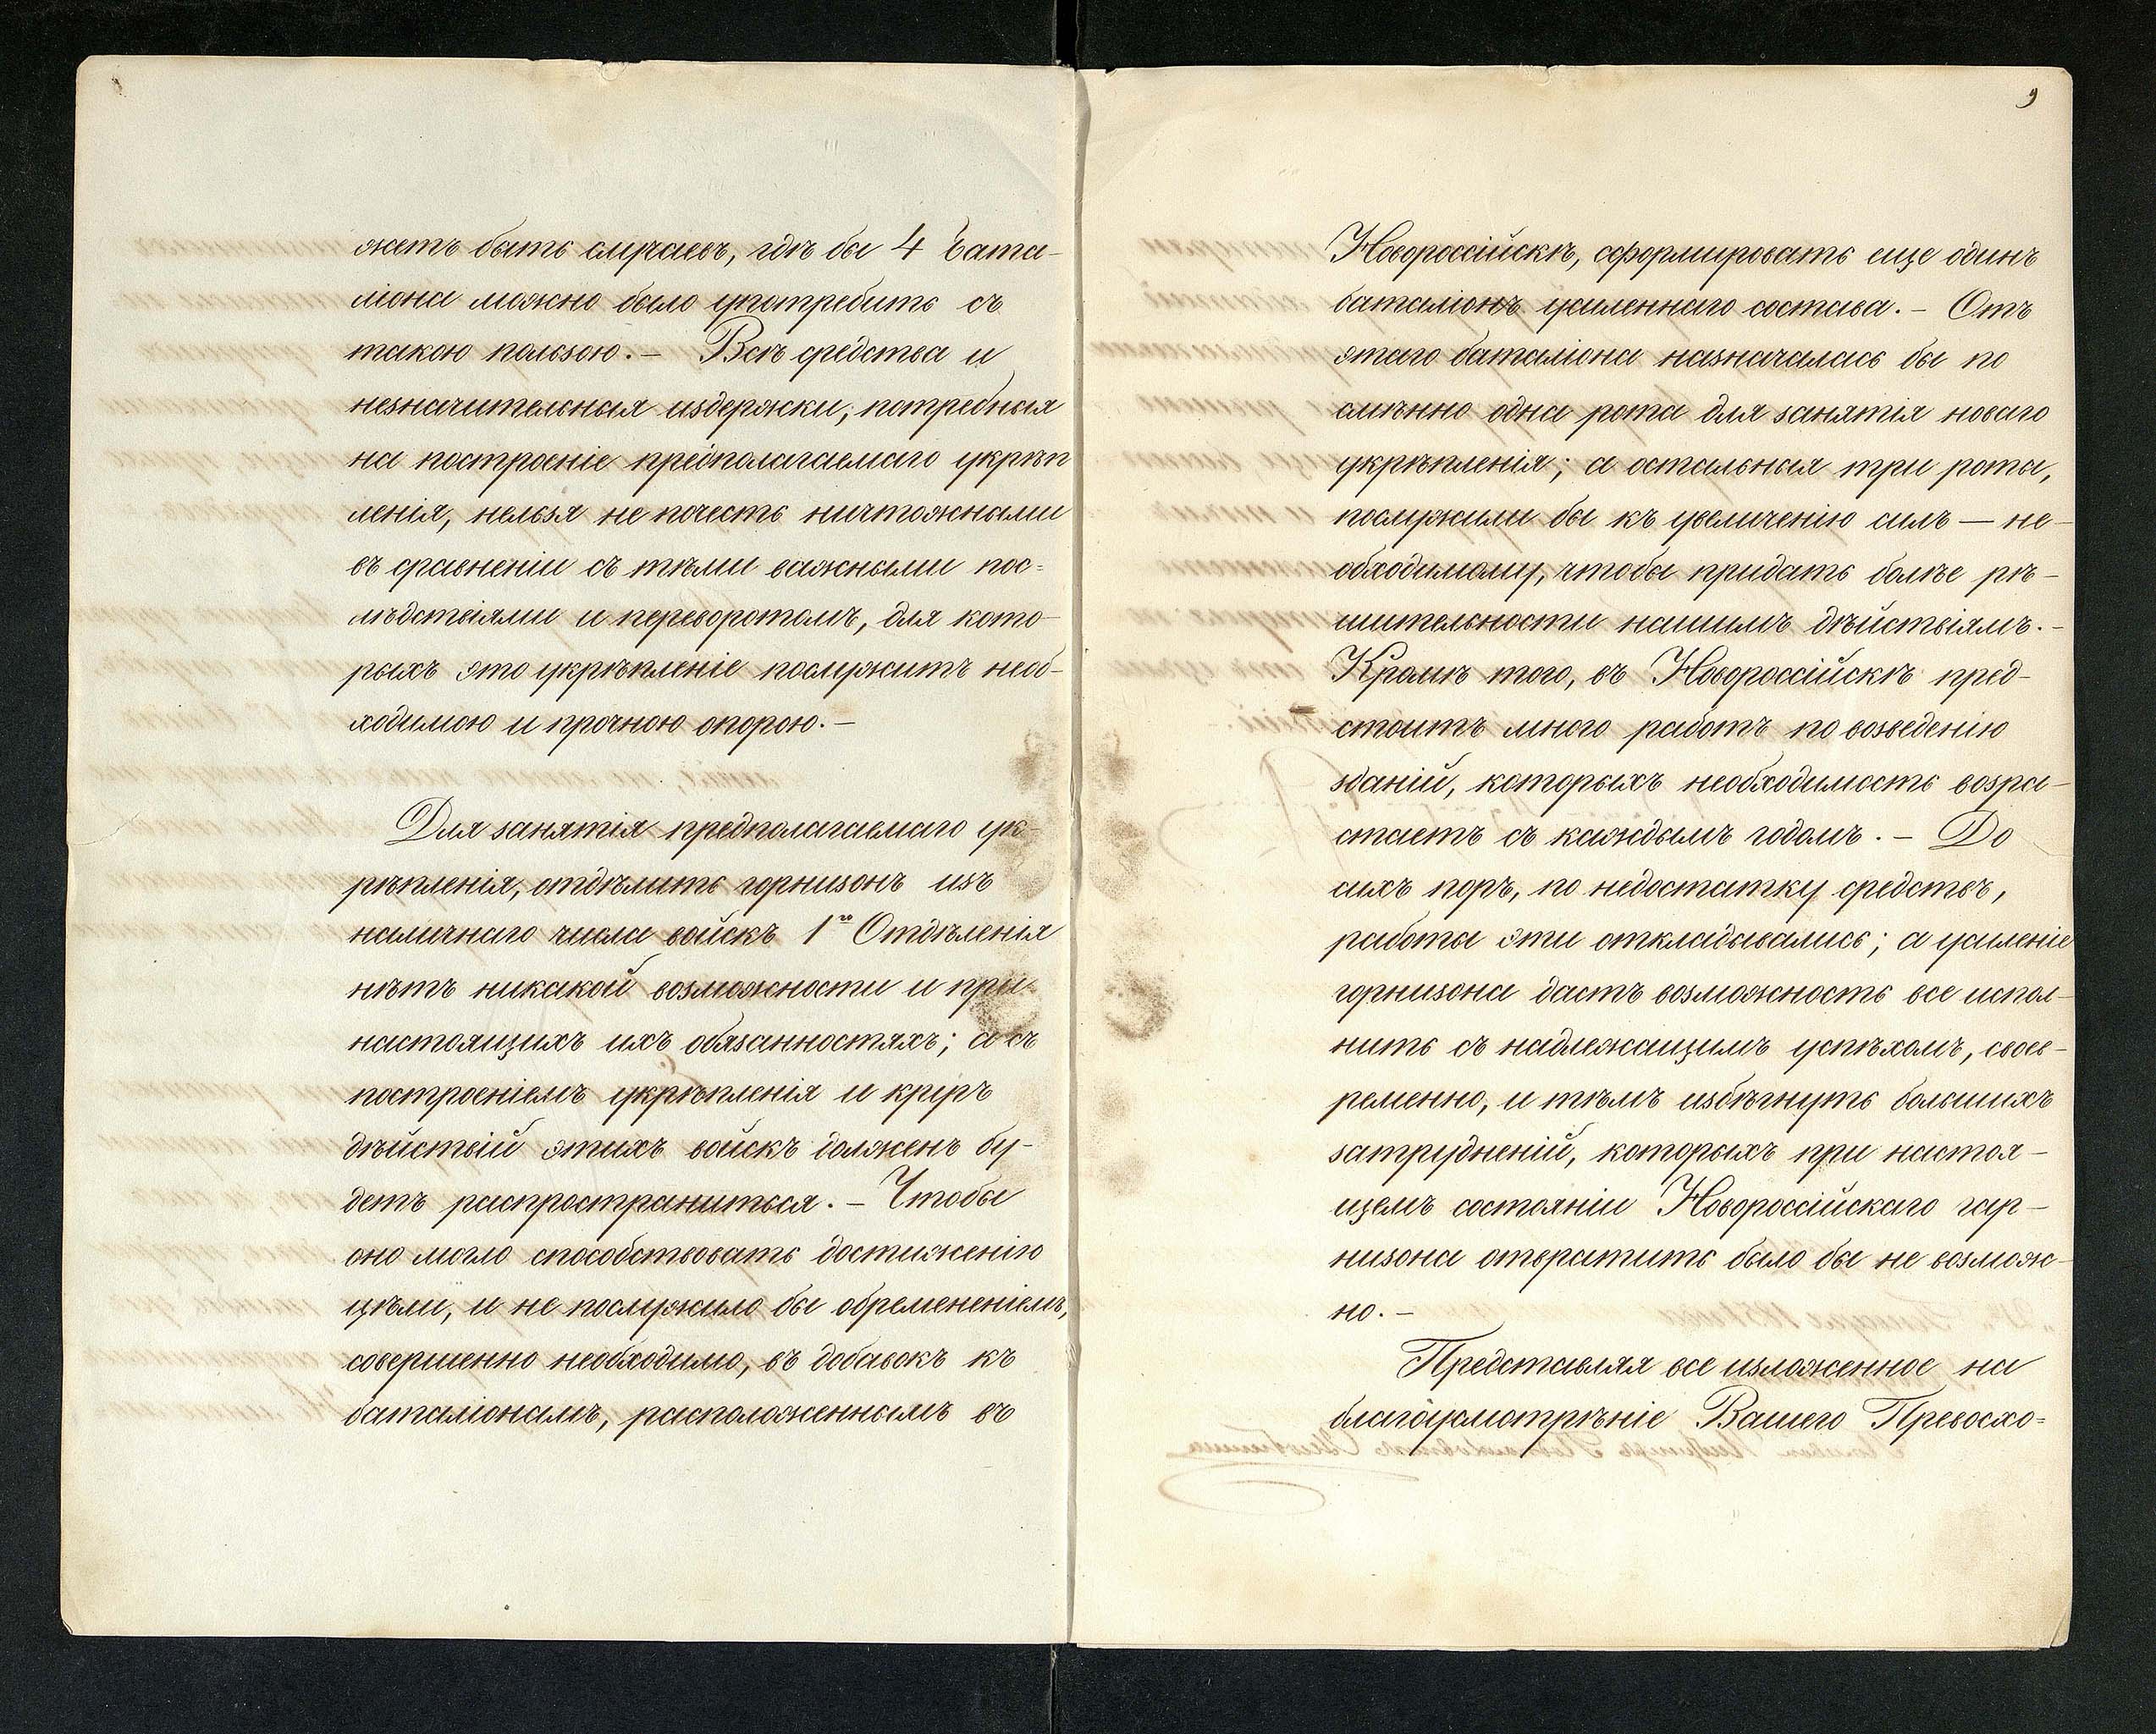 жетъ быть случаевъ, гдѣ бы 4 бата-
ліона можно было употребить съ
такою пользою. – Всѣ средства и
незначительныя издержки, потребныя
на построеніе предполагаемаго укрѣп
ленія, нельзя не почесть ничтожными
въ сравненіи съ тѣми важными пос=
лѣдствіями и переворотомъ, для кото-
рыхъ это укрѣпленіе послужитъ необ-
ходимою и прочною опорою. –
Для занятія предполагаемаго ук-
рѣпленія, отдѣлить горнизонъ изъ
наличнаго числа войскъ 1го Отдѣленія
нѣтъ никакой возможности и при
настоящихъ ихъ обязанностяхъ; а съ
построеніемъ укрѣпленія и кругъ
дѣйствій этихъ войскъ долженъ бу-
детъ распространиться. – Чтобы
оно могло способствовать достиженію
цѣли, и не послужило бы обремененіемъ,
совершенно необходимо, въ добавокъ къ
баталіонамъ, расположеннымъ въ
9
Новороссійскѣ, сформировать еще одинъ
баталіонъ усиленнаго состава. – Отъ
этаго баталіона назначалась бы по
смѣнно одна рота для занятія новаго
укрѣпленія; а остальныя три роты,
послужили бы къ увеличенію силъ — не-
обходимому, чтобы придать болѣе рѣ-
шительности нашимъ дѣйствіямъ. –
Кромѣ того, въ Новороссійскѣ пред-
стоитъ много работъ по возведенію
зданій, которыхъ необходимость возра-
стаетъ съ каждымъ годомъ. – До
сихъ поръ, по недостатку средствъ,
работы эти откладывались; а усиленіе
горнизона дастъ возможность все испол-
нить съ надлежащимъ успѣхомъ, своев-
ременно, и тѣмъ избѣгнуть большихъ
затрудненій, которыхъ при настоя-
щемъ состояніи Новороссійскаго гар-
низона отвратить было бы не возмож-
но. –
Представляя все изложенное на
благоусмотрѣніе Вашего Превосхо=